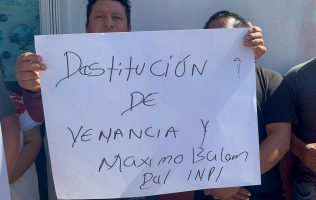 Destitución
DE
VENANCIA Y
Maximo Balam
Del INPI